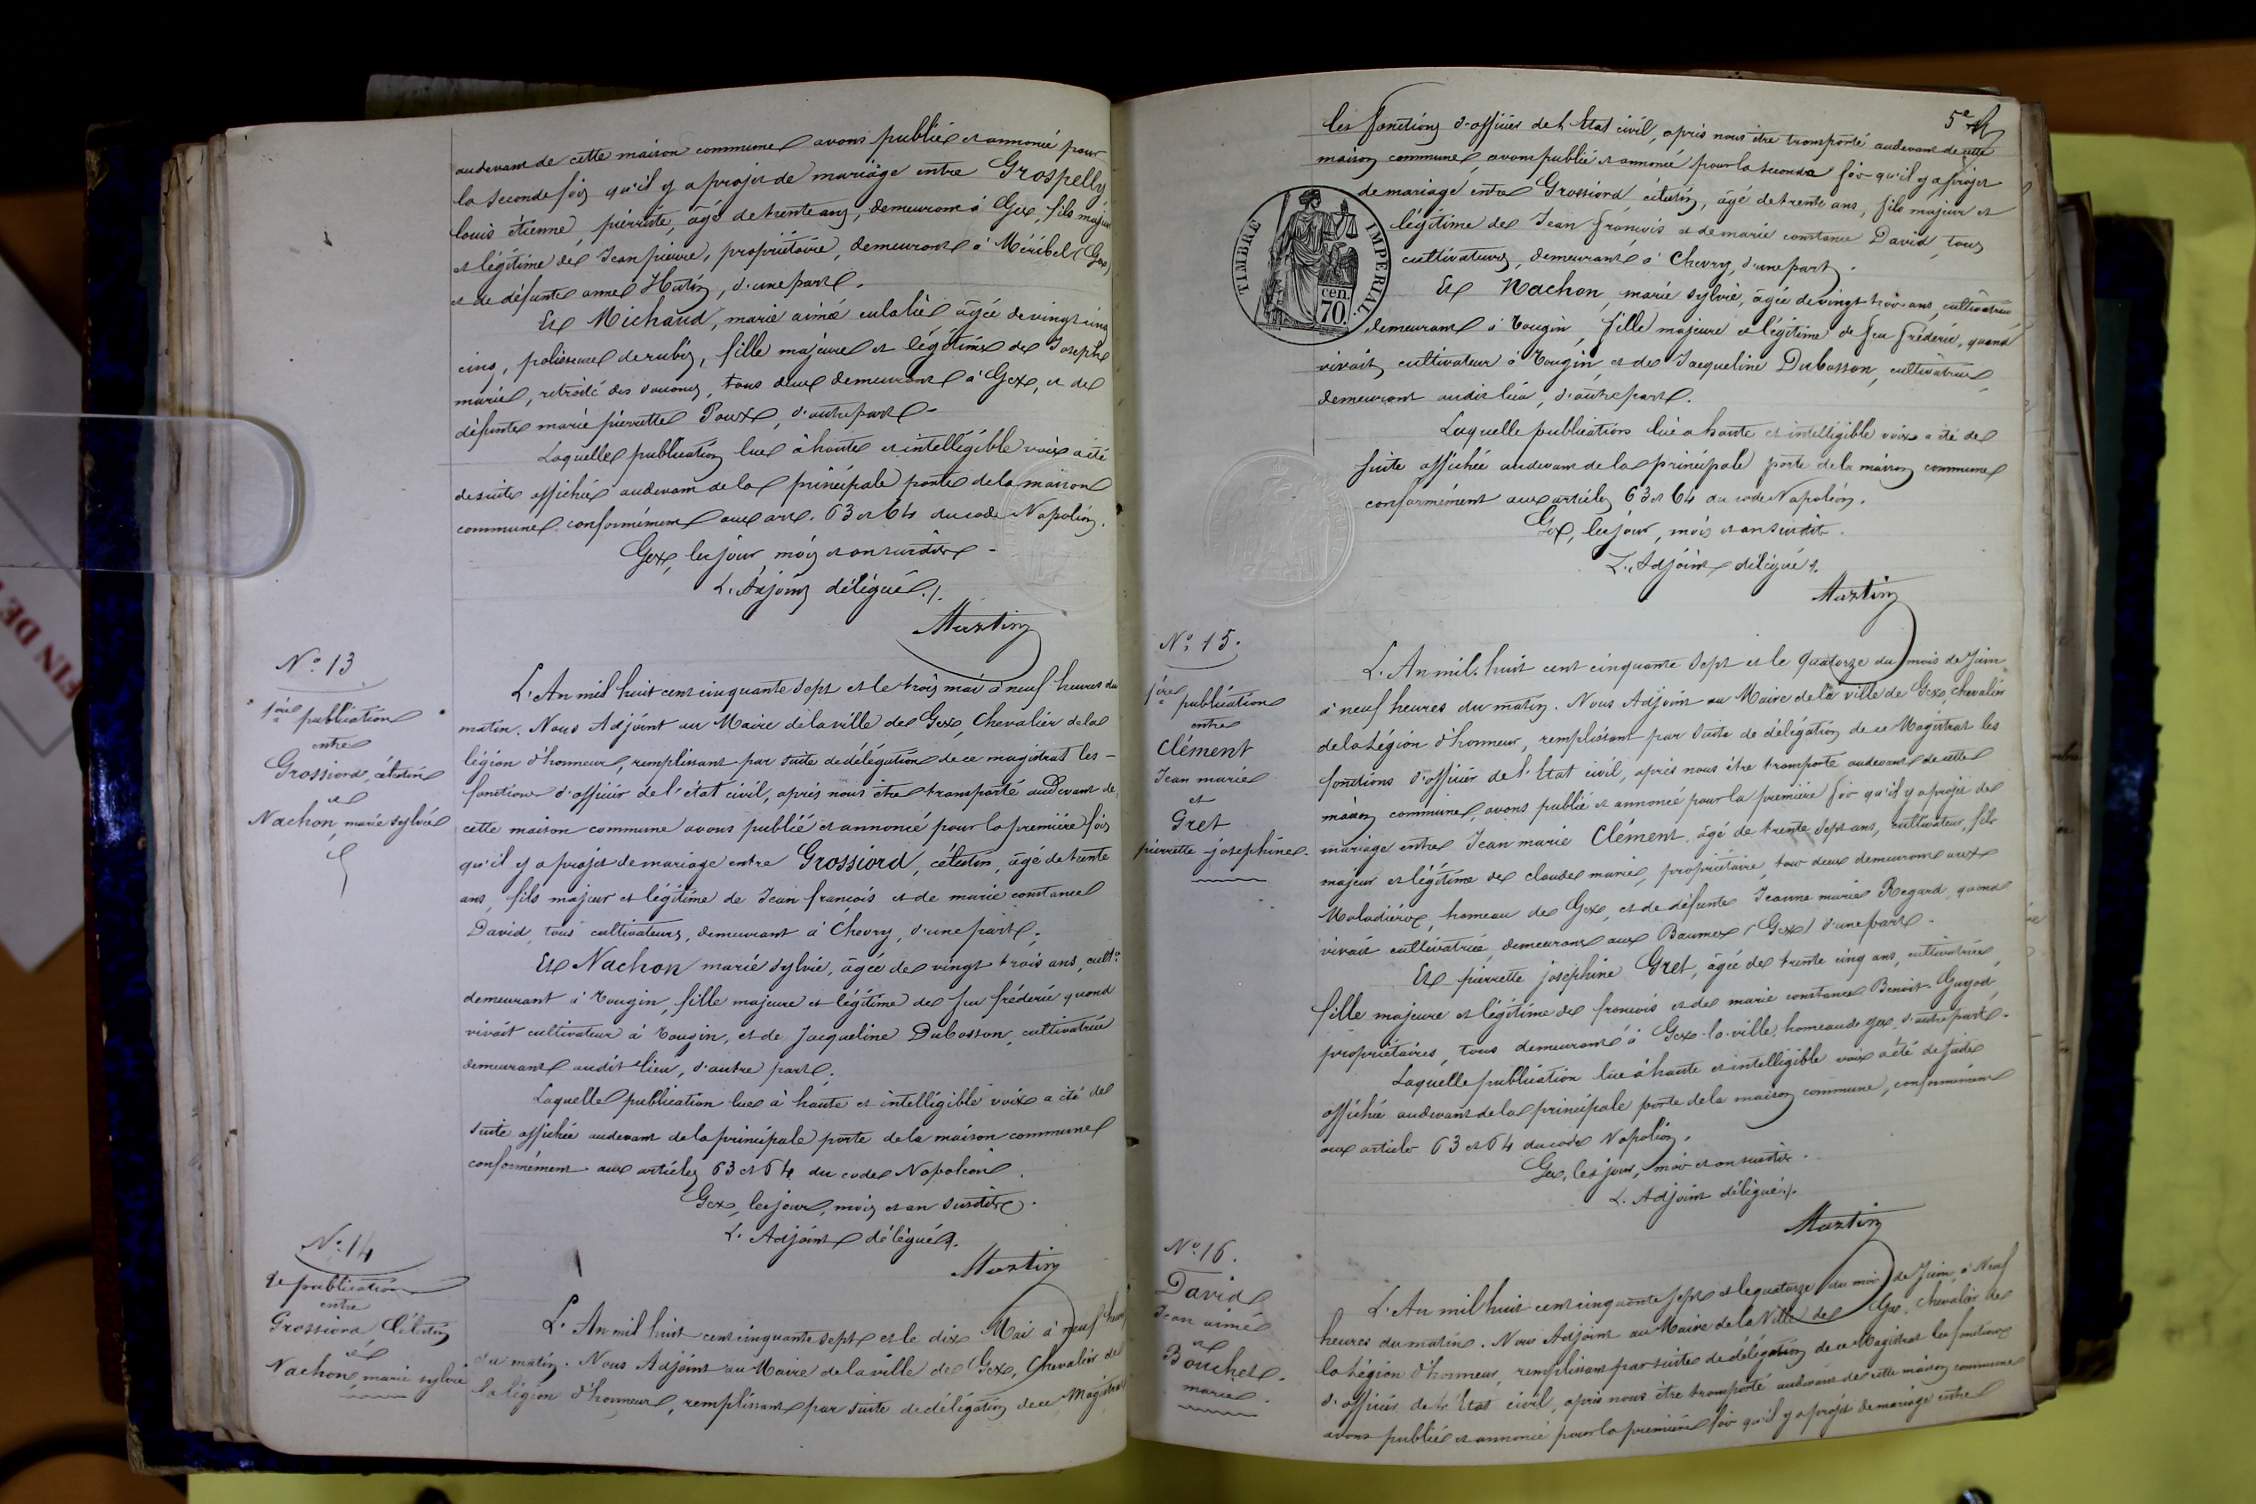 audevant de cette maison commune avons publié et annoncé pour
la seconde fois qu'il y a projet de mariage entre Grospelly
louis étienne, pierriste, âgé de trente ans, demeurant à Gex, fils majeur
et légitime de Jean pierre, propriétaire, demeurant à Méribel (Gex)
et de défunte anne Hutin, d'une part.
Et Michaud, marie aimée eulalie âgée de vingt cinq
cinq, polisseuse de rubis, fille majeure et légitime de Joseph
marie, retraité des douanes, tous deux demeurant à Gex, et de
défunte marie pierrette Poux, d'autre part.
Laquelle publication lue à haute et intelligible voix a été
de suite affichée audevant de la principale porte de la maison
commune conformément aux art. 63 et 64 du code Napoléon.
Gex, les jour mois et an susdits.
L'Adjoint délégué.
Martin
N° 13
1ère publication
entre
Grossiord, célestin
et
Nachon, marie sylvie
L'An mil huit cent cinquante sept et le trois mai à neuf heures du
matin. Nous Adjoint au Maire de la ville de Gex, Chevalier de la
légion d'honneur, remplissant par suite de délégation de ce magistrat les
fonctions d'officier de l'état civil, après nous être transporté audevant de
cette maison commune avons publié et annoncé pour la première fois
qu'il y a projet de mariage entre Grossiord, célestin, âgé de trente
ans, fils majeur et légitime de Jean françois et de marie constance
David, tous cultivateurs, demeurant à Chevry, d'une part,
Et Nachon marie sylvie, âgée de vingt trois ans, cult.ce
demeurant à Tougin, fille majeure et légitime de feu frédéric quand
vivait cultivateur à Tougin, et de Jacqueline Dubosson, cultivatrice
demeurant audit lieu, d'autre part.
Laquelle publication lue à haute et intelligible voix a été de
suite affichée audevant de la principale porte de la maison commune
conformément aux articles 63 et 64 du code Napoléon.
Gex, les jour, mois et an susdits.
L'Adjoint délégué.
Martin
N° 14
2e publication
entre
Grossiord, Célestin
et
Nachon marie sylvie
L'An mil huit cent cinquante sept et le dix Mai à neuf heures
du matin. Nous Adjoint au Maire de la ville de Gex, Chevalier de
la légion d'honneur, remplissant par suite de délégation de ce Magistrat
5e
les fonctions d'officier de l'Etat civil, après nous être transporté audevant de cette
maison commune, avons publié et annoncé pour la seconde fois qu'il y a projet
de mariage entre Grossiord, célestin, âgé de trente ans, fils majeur et
légitime de Jean françois et de marie constance David, tous
cultivateurs, demeurant à Chevry, d'une part.
TIMBRE IMPERIAL
70 cen.
Et Nachon, marie sylvie, âgée de vingt trois ans, cultivatrice
demeurant à Tougin, fille majeure et légitime de feu frédéric, quand
vivait, cultivateur à Tougin et de Jacqueline Dubosson, cultivatrice
demeurant audit lieu, d'autre part.
Laquelle publication lue à haute et intelligible voix a été de
suite affichée audevant de la principale porte de la maison commune
conformément aux articles 63 et 64 du code Napoléon.
Gex, les jour, mois et an susdits.
L'Adjoint délégué.
Martin
N° 15.
1ère publication
entre
Clément
Jean marie
et
Gret
pierrette josephine.
L'An mil huit cent cinquante sept et le Quatorze du mois de Juin
à neuf heures du matin. Nous Adjoint au Maire de la ville de Gex, chevalier
de la Légion d'honneur, remplissant par suite de délégation de ce Magistrat les
fonctions d'officier de l'Etat civil, après nous être transporté audevant de cette
maison commune, avons publié et annoncé pour la première fois qu'il y a projet de
mariage entre Jean marie Clément, âgé de trente sept ans, cultivateur, fils
majeur et légitime de claude marie, propriétaire, tous deux demeurant aux
Maladières, hameau de Gex, et de défunte Jeanne marie Regard, quand
vivait cultivatrice, demeurant aux Baumes (Gex) d'une part.
Et pierrette josephine Gret, âgée de trente cinq ans, cultivatrice,
fille majeure et légitime de françois et de marie constance Benoit-Guyod,
propriétaires, tous demeurant à Gex-la-ville, hameau de gex, d'autre part.
Laquelle publication lue à haute et intelligible voix a été de suite
affichée audevant de la principale porte de la maison commune, conformément
aux articles 63 et 64 du code Napoléon.
Gex, les jour, mois et an susdits.
L'Adjoint délégué.
Martin
N° 16.
David
Jean aimé
et
Bouchet.
marie.
L'An mil huit cent cinquante sept et le quatorze du mois de Juin, à Neuf
heures du matin. Nous Adjoint au Maire de la Ville de Gex, Chevalier de
la Légion d'honneur, remplissant par suite de délégation de ce Magistrat les fonctions
d'officier de l'Etat civil, après nous être transporté audevant de cette maison commune
avons publié et annoncé pour la première fois qu'il y a projet de mariage entre
FIN DE